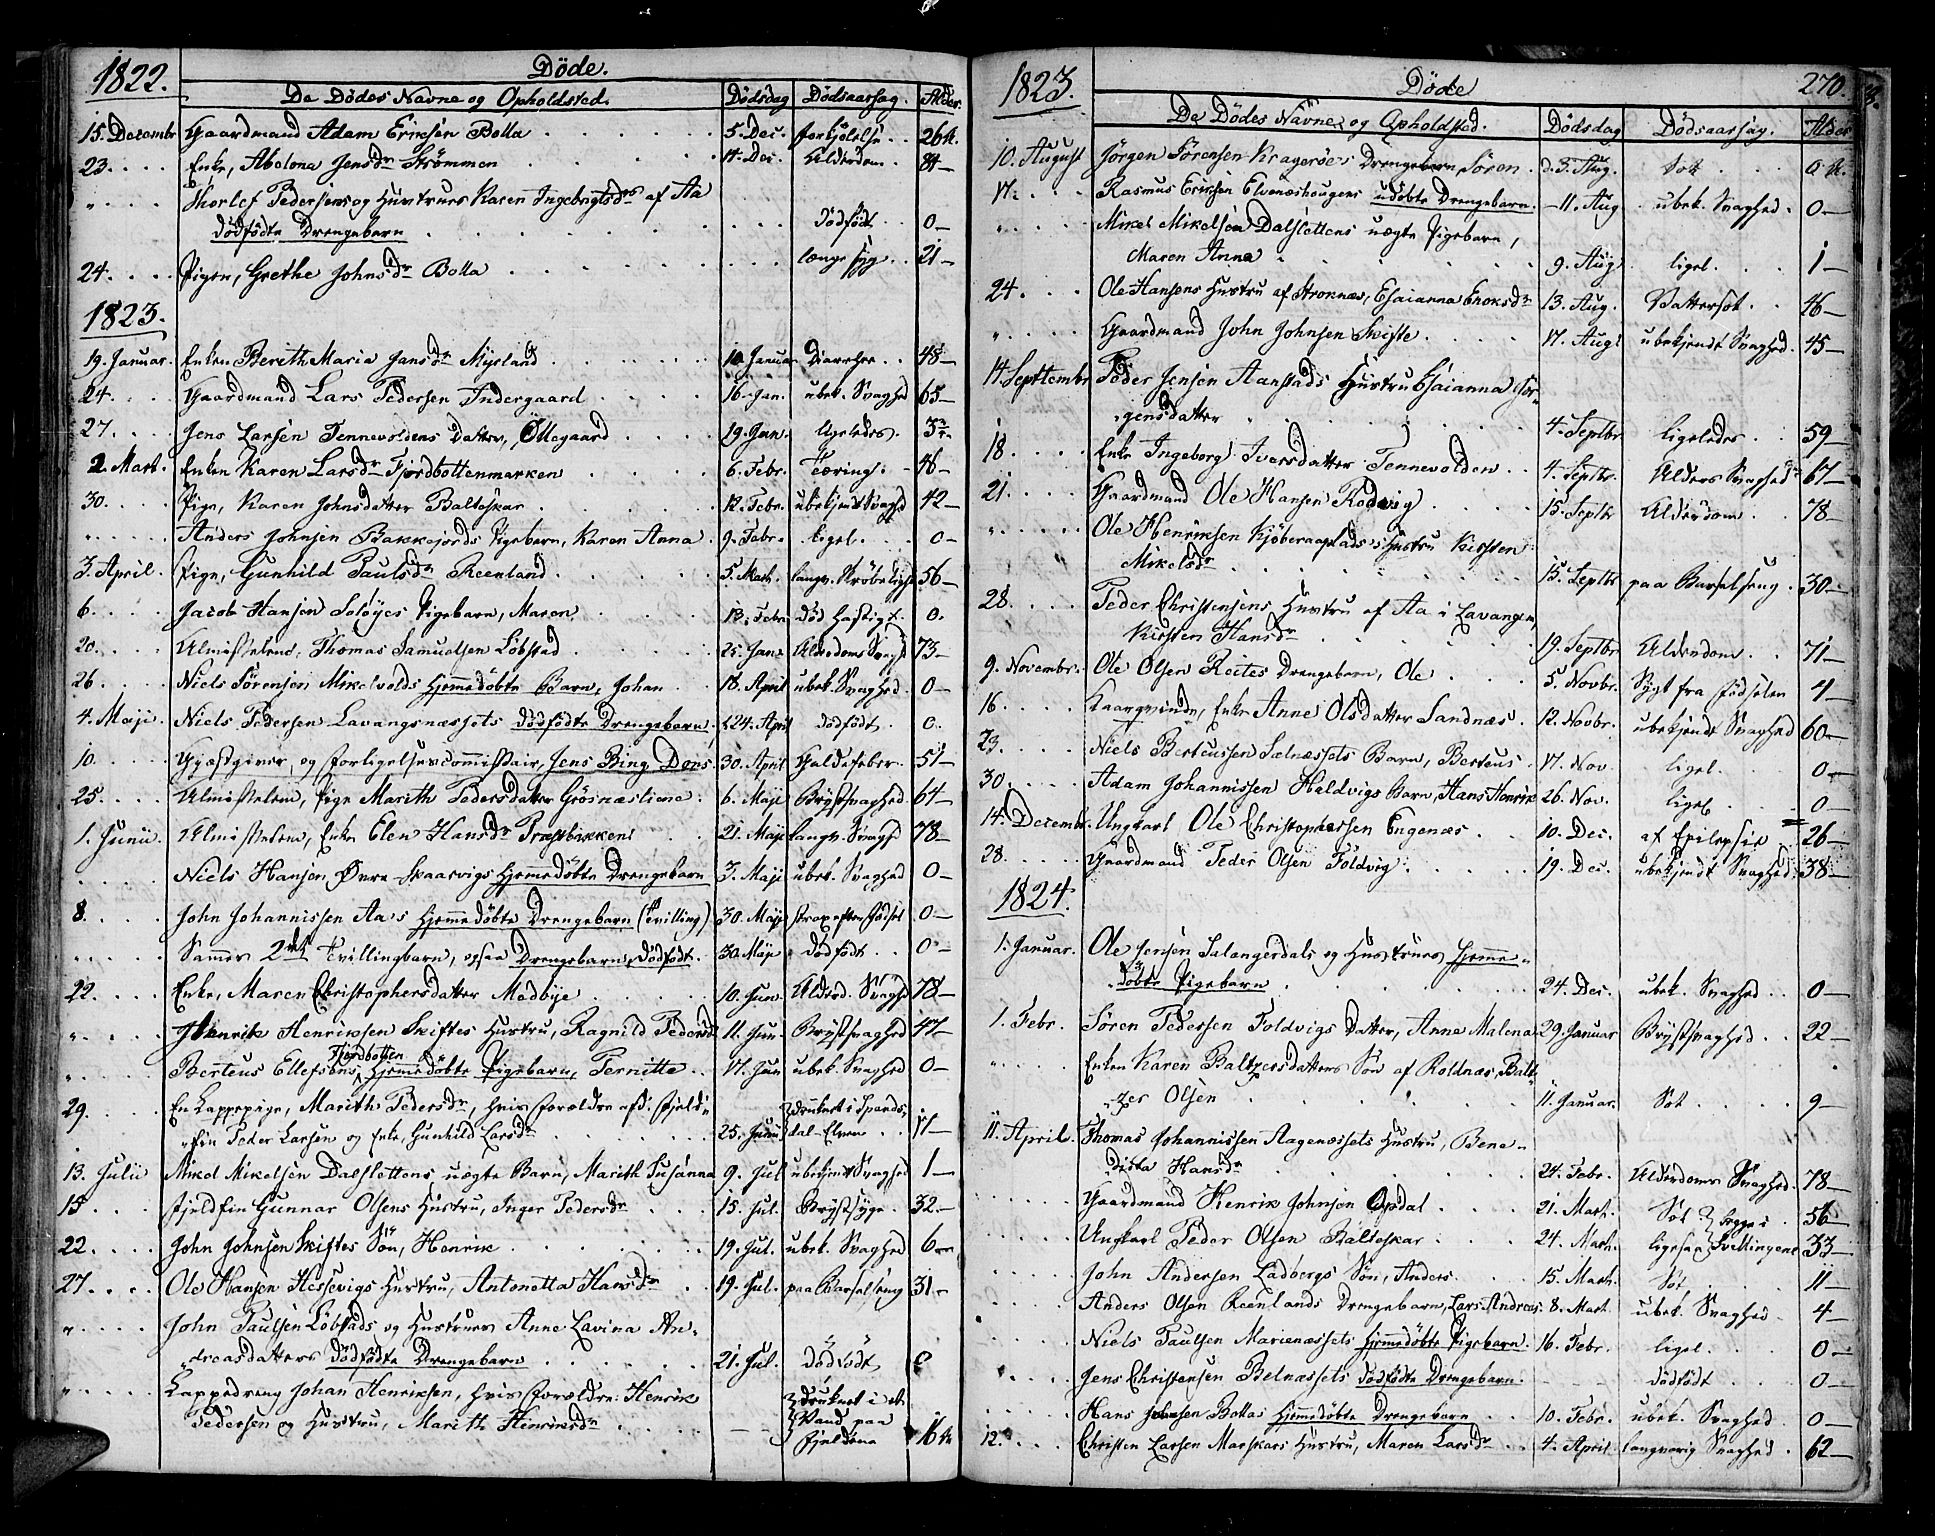 1822. Døde.
De Dødes Navne og Opholdsted. Dødsdag Dødsaarsag. Alder.
15. Decembr Gaardmand Adam Eriksen Bolla 5. Dec. forkjølelse 26 A.
23. Enke, Abelona Jensdr Strømmen 11. Dec. Alderdom 84 —
" Thorlef Pedersens og Hustrues Karen Ingebrigtsdrs af Aa
dødfødte Drengebarn Dødfødt 0 —
24. Pigen, Grethe Johnsdr Bolla længe syg 21 —
1823.
19. Januar. Enken Berith Maria Jansdr Myrland 10 Januar Diarrhee 48 —
24. Gaardmand Lars Pedersen Indergaard 16. Jan. ubek. Svaghed 65 —
27. Jens Larsen Tennevoldens Datter, Ollegaard 19. Jan. ligeledes. 3
2. Mart. Enken Karen Larsdr Fjordbottenmarken 6. Febr. Tæring 46 —
30. Pige, Karen Johnsdatter Balteskar 12. Febr. ubekjendt Svaghd 42 —
" Anders Johnsen Bakkejords Pigebarn, Karen Anna 9. Febr. ligel. 0 —
3. April. Pige, Gunhild Paulsdr Reenland 5. Mart. langv. Skrøbelighd 56 —
6. Jacob Hansen Soløyes Pigebarn, Maren 13. Febr. død hastigt. 0.
20. Almisselem, Thomas Samuelsen Løbstad 25. Jan. Alderdoms Svaghd 73 —
26. Niels Sørensen Mikelvolds hjemmedøbte Barn, Johan 18. April ubek. Svaghed 0 —
4. Maji. Niels Pedersen Lavangsnæssets dødfødte Drengebarn d. 24. April dødfødt. 0.
10. Gjæstgiver, og forligelsescommissair, Jens Bing Dons 30. April Galdefeber 51 —
25. Almisselem, Pige Marith Pedersdatter Grøsnæsliene 6. Maji Brystsvaghed 64 —
1. Junii. Almisselem, Enke Elen Hansdr Præstbakken 21. Maji langv. Svaghd 78 —
Niels Hansen Øvre Skaarvigs hjemmedøbte Drengebarn 3. Maji ubek. Svaghed 0 —
8. John Johannissen Aa's hjemmedøbte Drengebarn (Tvilling) 30. Maji strax efter fødsel 0 —
Sammes 2det Tvillingbarn, ogsaa Drengebarn, dødfødt. 30. Maji dødfødt 0 —
22. Enke, Maren Christophersdatter Medbye 10. Jun. Alderd. Svaghd 78 —
" Henrik Henriksen Skiftes Hustru, Ragnild Pedersd 11. Jun Brystsvaghed 47 —
" Berteus Ellefsens Fjordbotten hjemmedøbte Pigebarn, Pernitte 17. Jun ubek. Svaghed 0 —
29. En Lappepige, Marith Pedersdr, hvis forældre ere: fjeld=
"fin Peder Larsen og Enke, Gunhild Larsdr 25. Junii drukned i Spansdal-Elven 17 —
13. Julii Mikel Mikelsen Dalslettens uægte Barn, Marith Susanna 9. Jul ubekjendt Svaghed 1 —
15 fjeldfin Gunnar Olsens Hustru, Inger Pedersdr 15. Jul. Brystsyge 32 —
22. John Johnsen Skiftes Søn, Henrik 19. Jul. ubek. Svaghed 6
27. Ole Hansen Hessevigs Hustru, Antonetta Hansdr 19. Jul. paa Barselseng 31 —
" John Paulsen Løbstads og Hustrues Anne Lavina An=
"dreasdatters dødfødte Drengebarn 21. Jul. dødfødt 0
" Lappedreng Johan Henriksen, hvis forældre: Henrik
Pedersen og Hustru, Marith Henriksdr drukned i et Vand paa fjeldene 16

1823. Døde 270.
De Dødes Navne og Opholdsted. Dødsdag Dødsaarsag. Alder
10. August Jørgen Sørensen Kragerøes Drengebarn, Søren d. 3. Aug. Sot 0 A.
17. Rasmus Eriksen Elvenæshougens udøbte Drengebarn — 11. Aug ubek. Svaghed 0 —
" Mikel Mikelsen Dalslettens uægte Pigebarn,
Maren Anna 9. Aug ligel. 1 —
24. Ole Hansens Hustru af Stroknæs, Esaianna Enoksdr 13. Aug. Vattersot 46 —
" Gaardmand John Johnsen Skifte 17. Aug. ubekjendt Svaghed 45 —
14. Septtembr Peder Jensen Aanstads Hustru Esaianna Jør=
"gensdatter 4. Septbr ligeledes 59 —
18. Enke Ingeborg Ivarsdatter Tennevolden 4. Septbr. Alders Svaghed 67 —
21. Gaardmand Ole Hansen Rodvig 15. Septbr Alderdom 78 —
" Ole Henriksen Kjøberaaplads's Hustru Kirsten
Mikelsdr 15. Septbr paa Barselseng 30 —
28. Peder Christensens Hustru af Aa i Lavangen,
Kirsten Hansdr 19. Septbr Alderdom 71 —
9. Novembr. Ole Olsen Roites Drengebarn, Ole 5. Novbr. Sygt fra fødselen 4 —
16. Kaarqvinde, Enke Anne Olsdatter Sandnæs 12. Novbr. ubekjendt Svaghed 60 —
23. Niels Berteussen Selnæssets Barn, Berteus 17. Nov. ligel. 0 —
30. Adam Johannissen Haldvigs Barn, Hans Henrik 26. Nov. ligel. 0 —
14. Decembr. Ungkarl Ole Christophersen Engenæs 10. Dec. af Epilepsie 26 —
28. Gaardmand Peder Olsen Foldvig 19. Dec. ubekjendt Svaghed 38 —
1824.
1. Januar. Ole Jensen Salangerdals og Hustrues hjemme=
"døbte Pigebarn 24. Dec. ubek. Svaghed 0 —
1. Febr. Søren Pedersen Foldvigs Datter, Anna Malena 29. Januar Brystsvaghed 22 —
" Enken Karen Baltzersdatters Søn af Roldnæs, Balt=
"zer Olsen 11. Januar. Sot 9 —
11. April. Thomas Johannissen Aagenæssets Hustru, Bene=
"dicta Hansdr 24. Febr. Alderdoms Svaghed 78 —
Gaardmand Henrik Johnsen Opdal 21. Mart. Sot begge i 56 —
Ungkarl Peder Olsen Balteskar 24. Mart. ligesaa Tvillingene 33 —
John Andersen Ladbergs Søn, Anders 15. Mart. Sot 11 —
Anders Olsen Reenlands Drengebarn, Lars Andreas 8. Mart. ubek. Svaghed 4 —
Niels Paulsen Marienæssets hjemmedøbte Pigebarn 16. Febr. ligel. 0 —
Jens Christensen Belnæssets dødfødte Drengebarn dødfødt 0 —
Hans Johnsen Bollas hjemmedøbte Drengebarn 10. Febr. ubek. Svaghed 0 —
12. Christen Larsen Marskars Hustru, Maren Larsdr 4. April. langvarig Svaghed 62 —